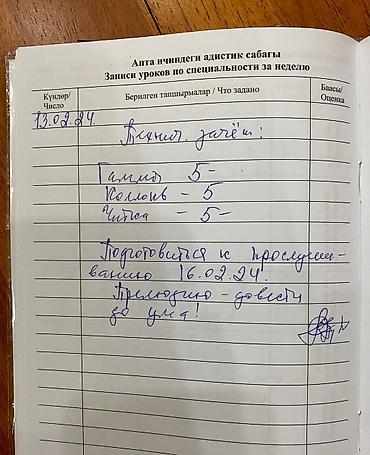 Апта ичиндеги адистик сабагы
Записи уроков по специальности за неделю
Күндөр/ Число
Берилген тапшырмалар / Что задано
Баасы/ Оценка
13.02.24.
Технич. зачёт:
Гаммы 5-
Коллокв - 5
Читка - 5-
Подготовиться к прослуши-
ванию 16.02.24.
Прелюдию - довести
до ума!